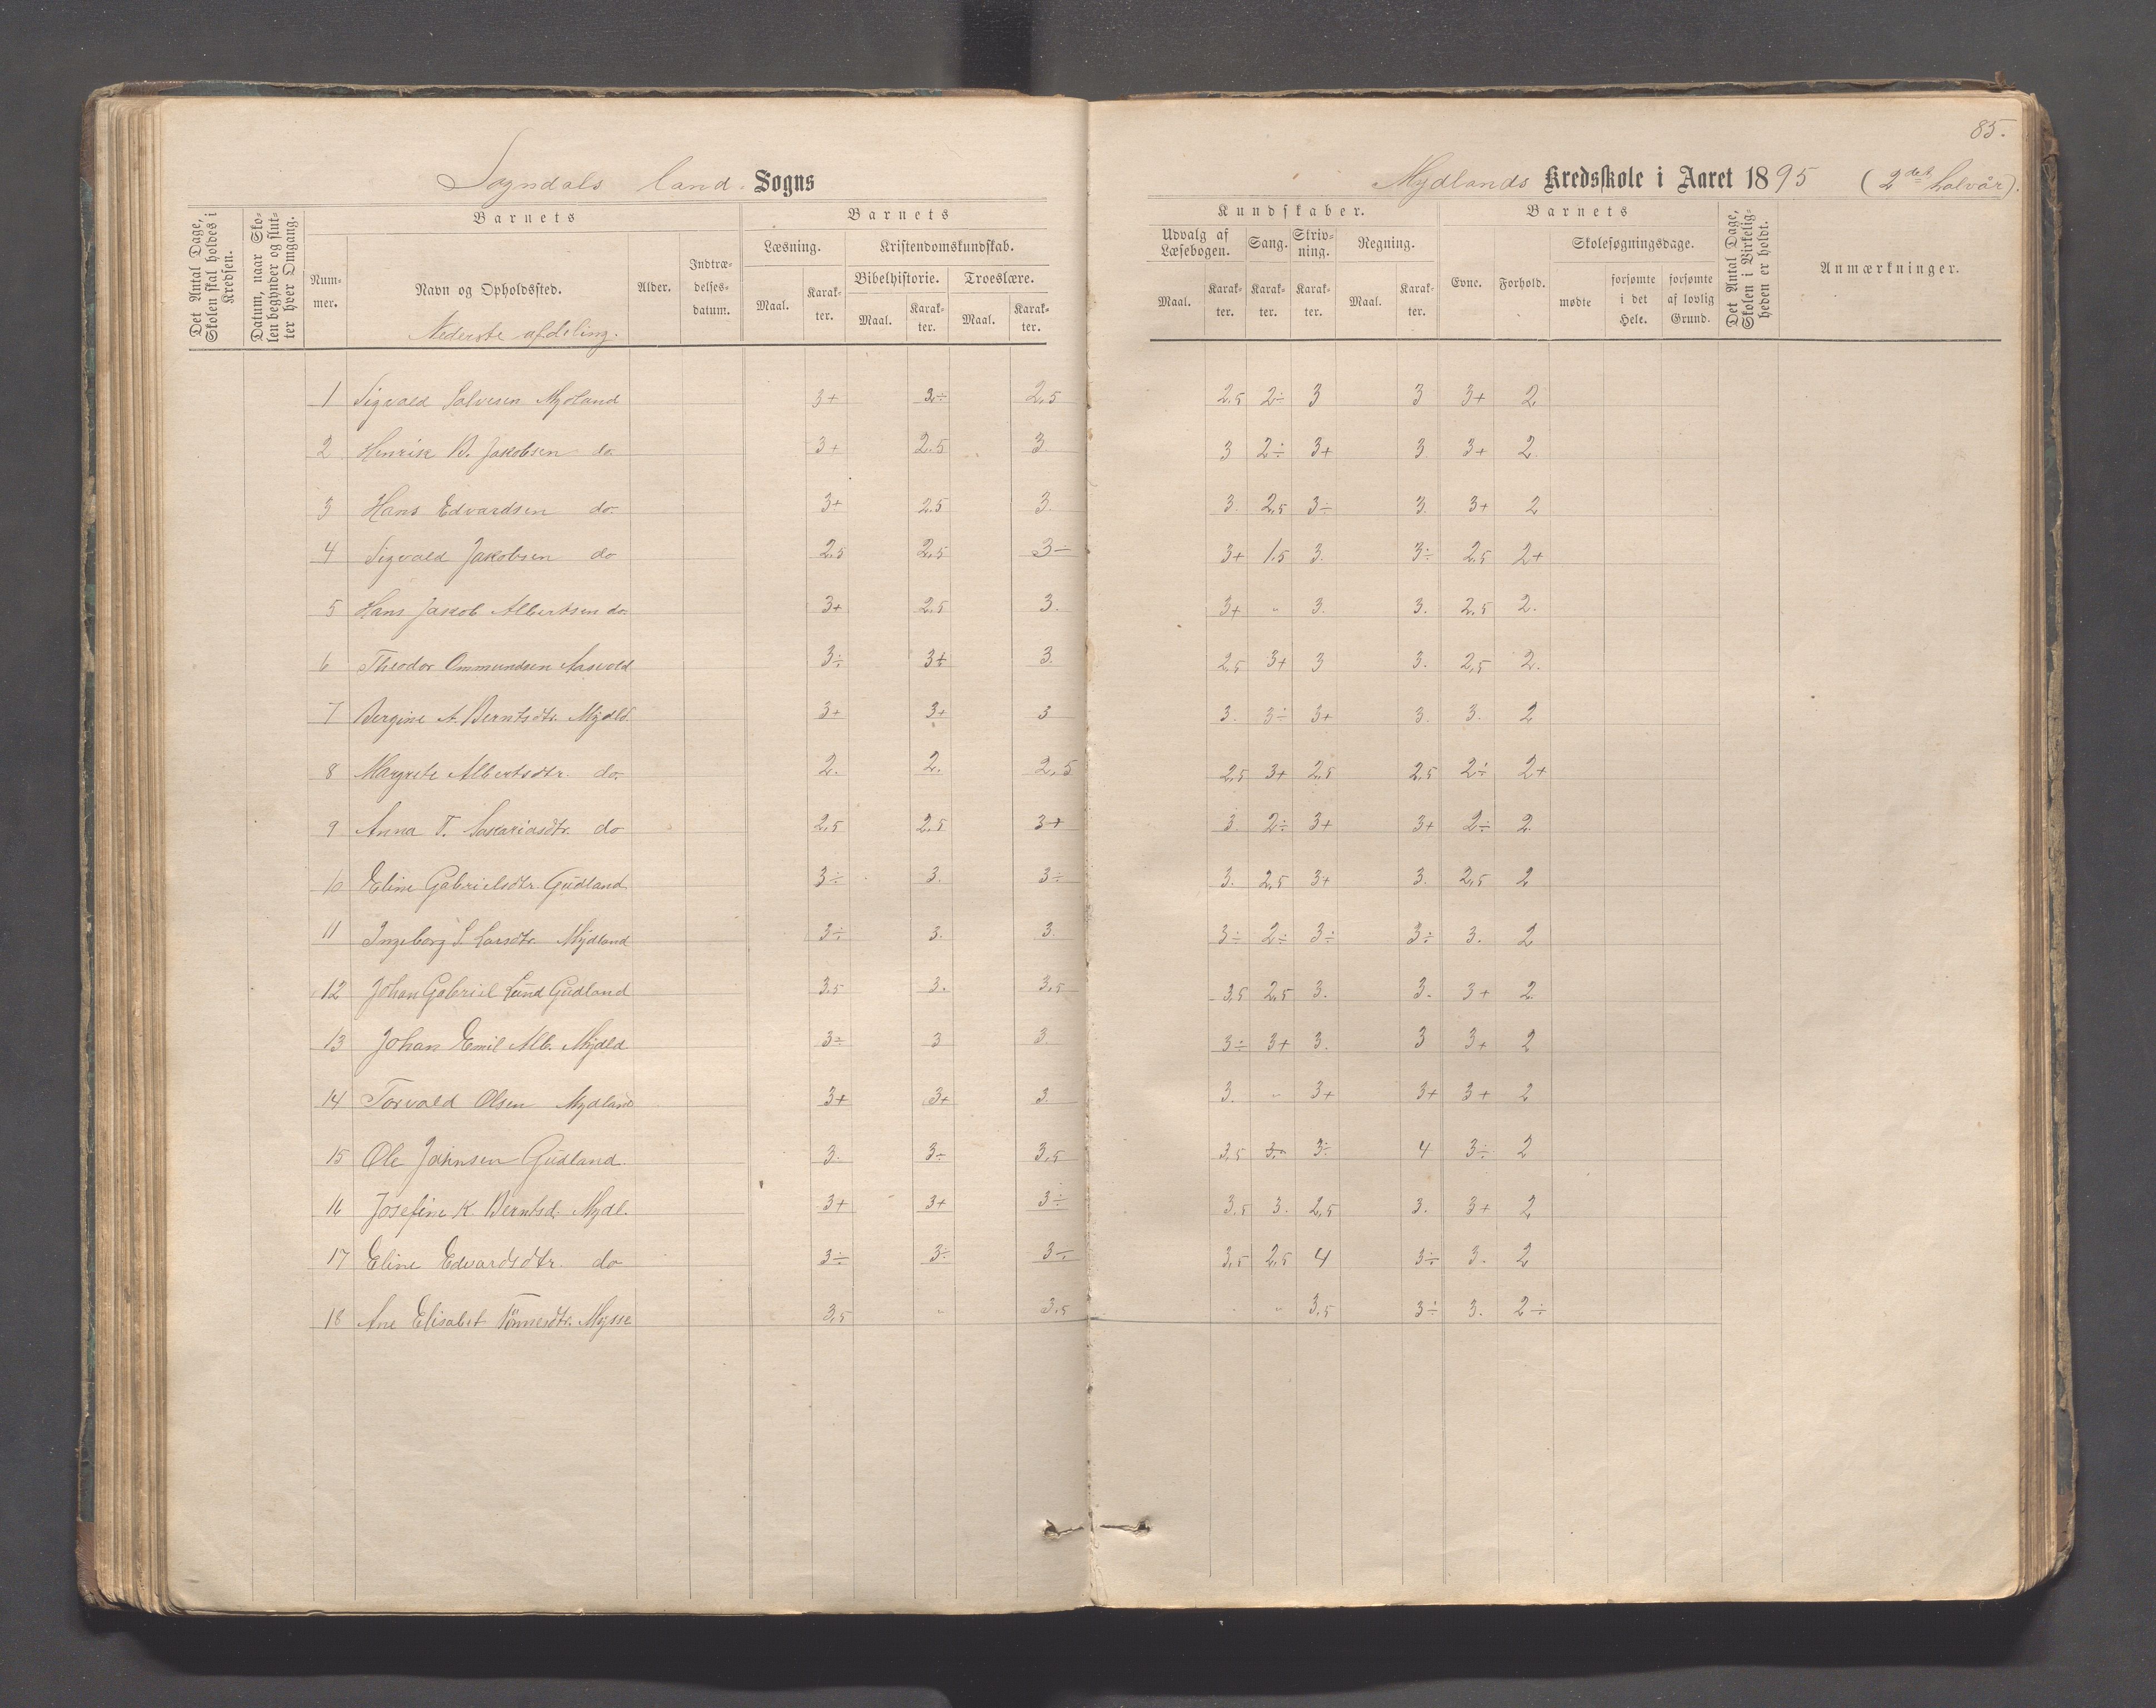 85.
Sogndals land. Sogns
Mydlands Kredsskole i Aaret 1895 (2det halvår).
Det Antal Dage, Skolen skal holdes i Kredsen.
Datum, naar Skolen begynder og slutter hver Omgang.
Barnets
Nummer.
Navn og Opholdssted.
Alder.
Indtrædelsesdatum.
Nederste afdeling.
Barnets
Læsning.
Kristendomskundskab.
Bibelhistorie. Troeslære.
Maal. Karakter. Maal. Karakter. Maal. Karakter.
Kundskaber.
Udvalg af Læsebogen. Sang. Skrivning. Regning.
Maal. Karakter. Karakter. Karakter. Maal. Karakter.
Barnets
Evne. Forhold. Skolesøgningsdage.
mødte forsømte i det Hele. forsømte af lovlig Grund.
Det Antal Dage, Skolen i Virkeligheden er holdt.
Anmærkninger.
1 Sigvald Salvesen Mydland 3+ 3÷ 2,5 2,5 2÷ 3 3 3+ 2
2 Henrik B. Jakobsen do. 3+ 2.5 3 3 2÷ 3+ 3. 3+ 2.
3 Hans Edvardsen do. 3+ 2.5 3. 3. 2,5 3÷ 3. 3+ 2
4 Sigvald Jakobsen do 2,5 2,5 3÷ 3+ 1.5 3. 3÷ 2,5 2+
5 Hans Jakob Albertsen do. 3+ 2,5 3. 3+ „ 3. 3. 2.5 2.
6 Theodor Ommundsen Aasvold 3÷ 3+ 3. 2,5 3+ 3 3. 2,5 2.
7 Bergine A. Berntsdtr. Mydld. 3+ 3+ 3 3. 3÷ 3+ 3. 3. 2
8 Margrete Albertsdtr. do. 2. 2. 2,5 2,5 3+ 2,5 2,5 2÷ 2+
9 Anna T. Sakariasdtr. do 2,5 2,5 3+ 3. 2÷ 3+ 3+ 2÷ 2.
10 Eline Gabrielsdtr. Gudland 3÷ 3. 3÷ 3. 2,5 3+ 3. 2,5 2
11 Ingeborg S. Larsdtr. Mydland 3÷ 3. 3. 3÷ 2÷ 3÷ 3÷ 3. 2
12 Johan Gabriel Lund Gudland 3.5 3. 3,5 3,5 2,5 3. 3. 3+ 2
13 Johan Emil Alb. Mydld 3÷ 3 3 3÷ 3+ 3. 3 3+ 2
14 Torvald Olsen Mydland 3+ 3+ 3. 3. „ 3+ 3+ 3+ 2
15 Ole Johnsen Gudland. 3. 3÷ 3,5 3,5 3. 3÷ 4 3÷ 2
16 Josefine K. Berntsd. Mydl. 3+ 3+ 3÷ 3,5 3. 2,5 3. 3+ 2
17 Eline Edvardsdtr. do 3÷ 3÷ 3÷ 3,5 2,5 4 3÷ 3. 2
18 Ane Elisabet Tønnesdtr. Mysse 3,5 „ 3,5 „ „ 3.5 3÷ 3. 2÷